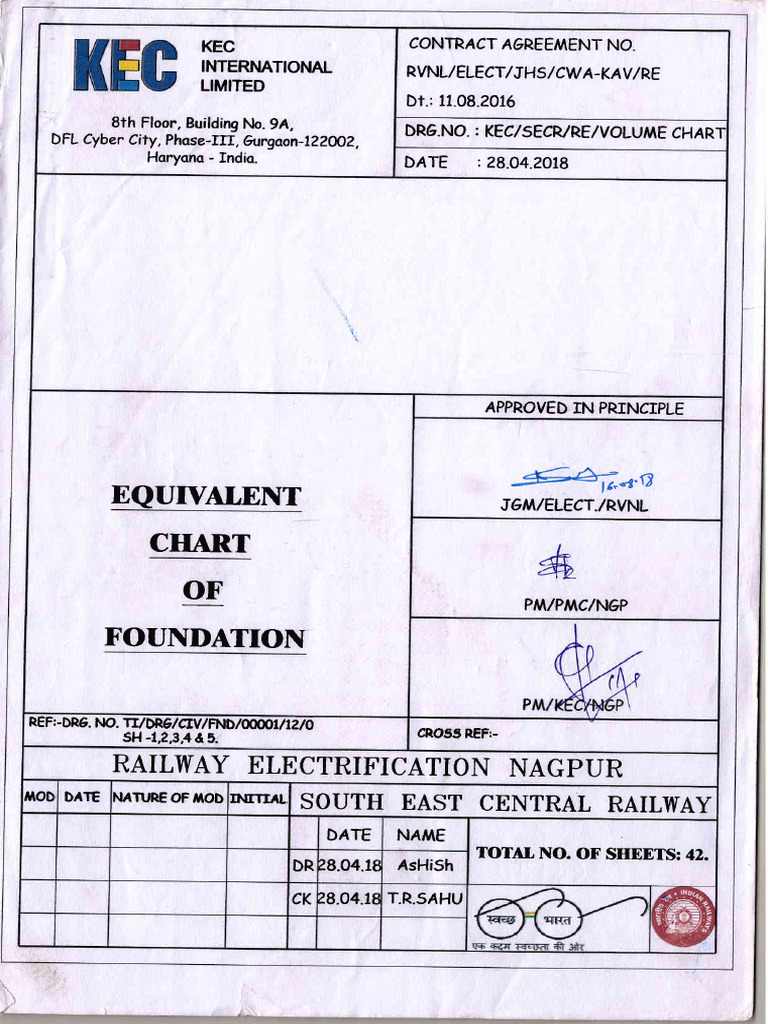 KEC
KEC
INTERNATIONAL
LIMITED
8th Floor, Building No. 9A,
DFL Cyber City, Phase-III, Gurgaon-122002,
Haryana - India.
CONTRACT AGREEMENT NO.
RVNL/ELECT/JHS/CWA-KAV/RE
Dt.: 11.08.2016
DRG.NO. : KEC/SECR/RE/VOLUME CHART
DATE : 28.04.2018
APPROVED IN PRINCIPLE
16.08.18
JGM/ELECT./RVNL
PM/PMC/NGP
PM/KEC/NGP
EQUIVALENT
CHART
OF
FOUNDATION
REF:-DRG. NO. TI/DRG/CIV/FND/00001/12/0
SH -1,2,3,4 & 5.
CROSS REF:-
RAILWAY ELECTRIFICATION NAGPUR
MOD DATE NATURE OF MOD INITIAL
SOUTH EAST CENTRAL RAILWAY
DATE NAME
DR 28.04.18 AsHiSh
CK 28.04.18 T.R.SAHU
TOTAL NO. OF SHEETS: 42.
स्वच्छ भारत
एक कदम स्वच्छता की ओर
INDIAN RAILWAYS
भारतीय रेल